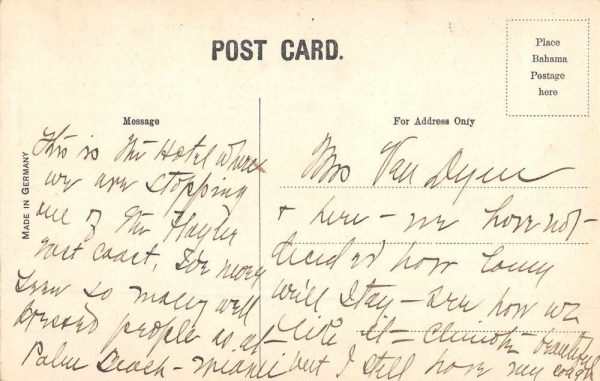 POST CARD.
Place
Bahama
Postage
here
Message
For Address Only
MADE IN GERMANY
This is the Hotel where
we are stopping
one of the Flagler
East Coast. I've never
seen so many well
dressed people as at
Palm Beach - Miami
Mrs Van Dyne
+ here - we have not -
decided how long
will stay - see how we
like it - Climate beautiful
but I still have my cough